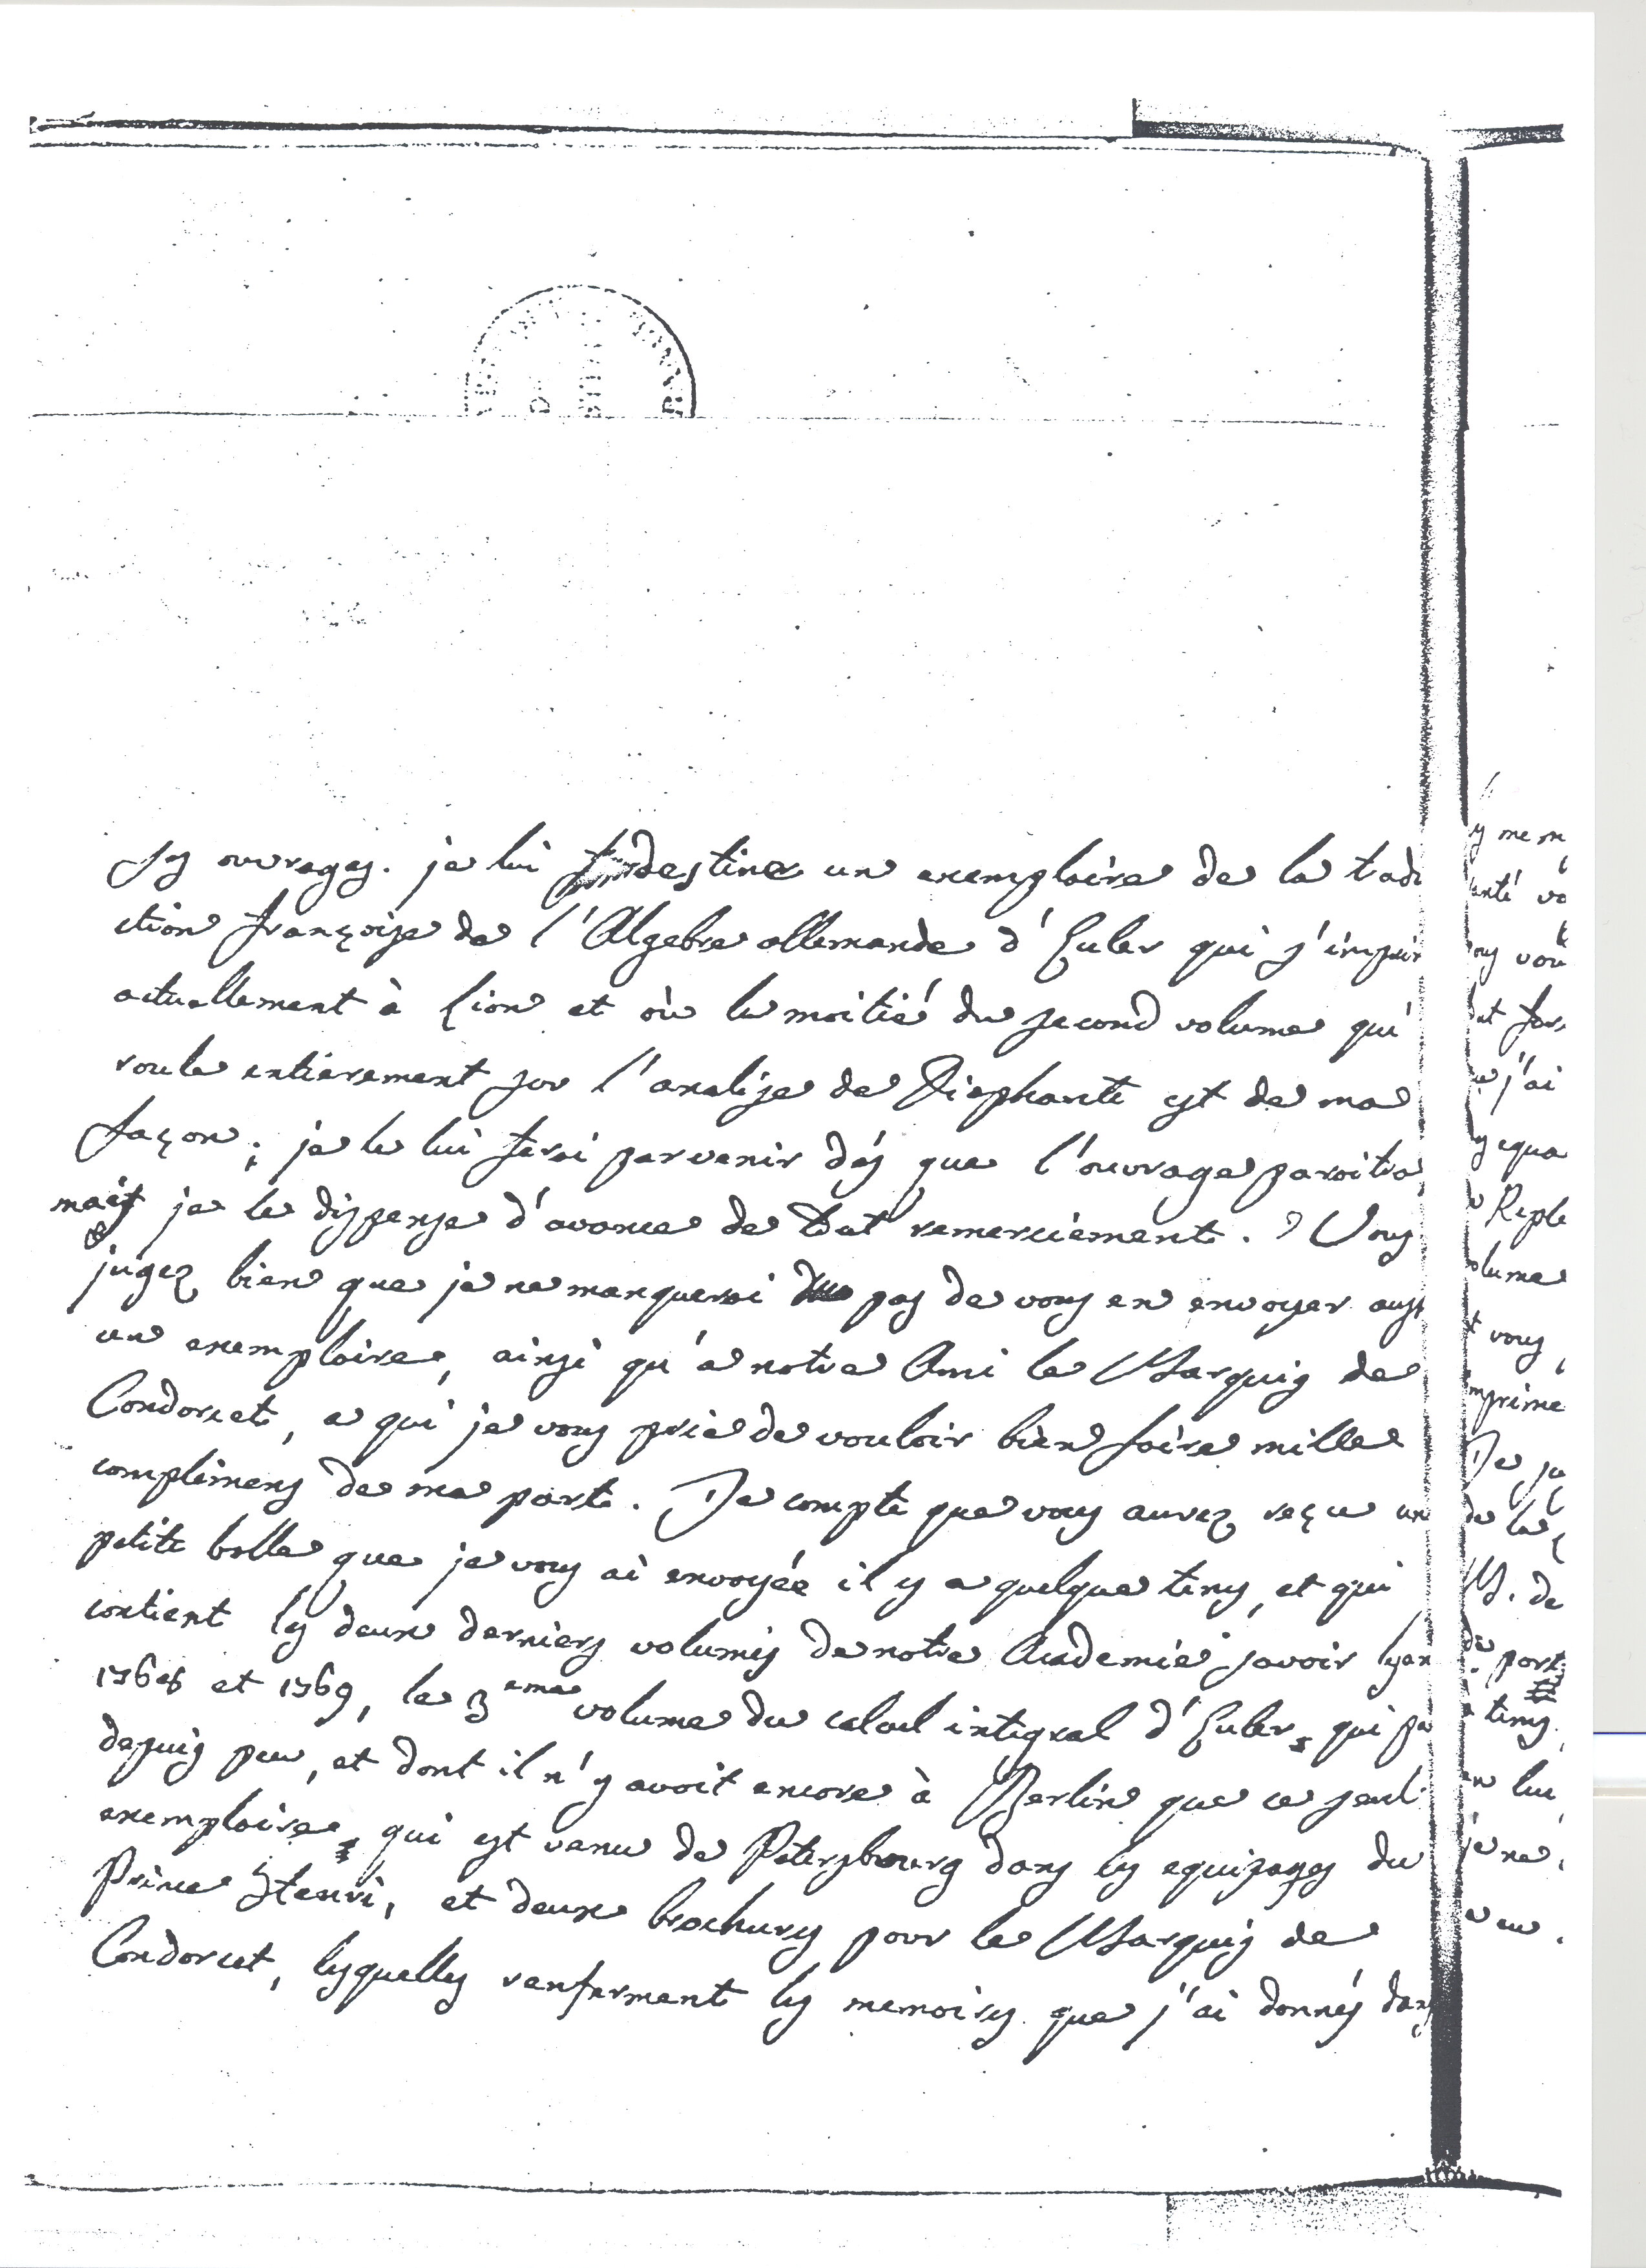 ses ouvrages. je lui destine un exemplaire de la tradu
ction françoise de l'Algebre allemande d'Euler qui s'imprim
actuellement à Lion et où la moitié du second volume qui
roule entierement sur l'analise de Diophante est de ma
façon; je le lui ferai parvenir dés que l'ouvrage paroitra
mais je le dispense d'avance de tout remerciement. Vous
jugez bien que je ne manquerai pas de vous en envoyer auss
un exemplaire, ainsi qu'a notre Ami le Marquis de
Condorcet, a qui je vous prie de vouloir bien faire mille
complimens de ma part. Je compte que vous aurez reçu un
petite balle que je vous ai envoyée il y a quelque tems, et qui
contient les deux derniers volumes de notre Academie savoir
1768 et 1769, le 3eme volume du calcul integral d'Euler, qui pa
depuis peu, et dont il n'y avoit encore à Berlin que ce seul
exemplaire, qui est venu de Petersbourg dans les equipages du
Prince Henri, et deux brochures pour le Marquis de
Condorcet, lesquelles renferment les memoires que j'ai donnés dans
vous
j'ai
equa
volume
vous
imprime
de la
M. de
tems
lui
je ne